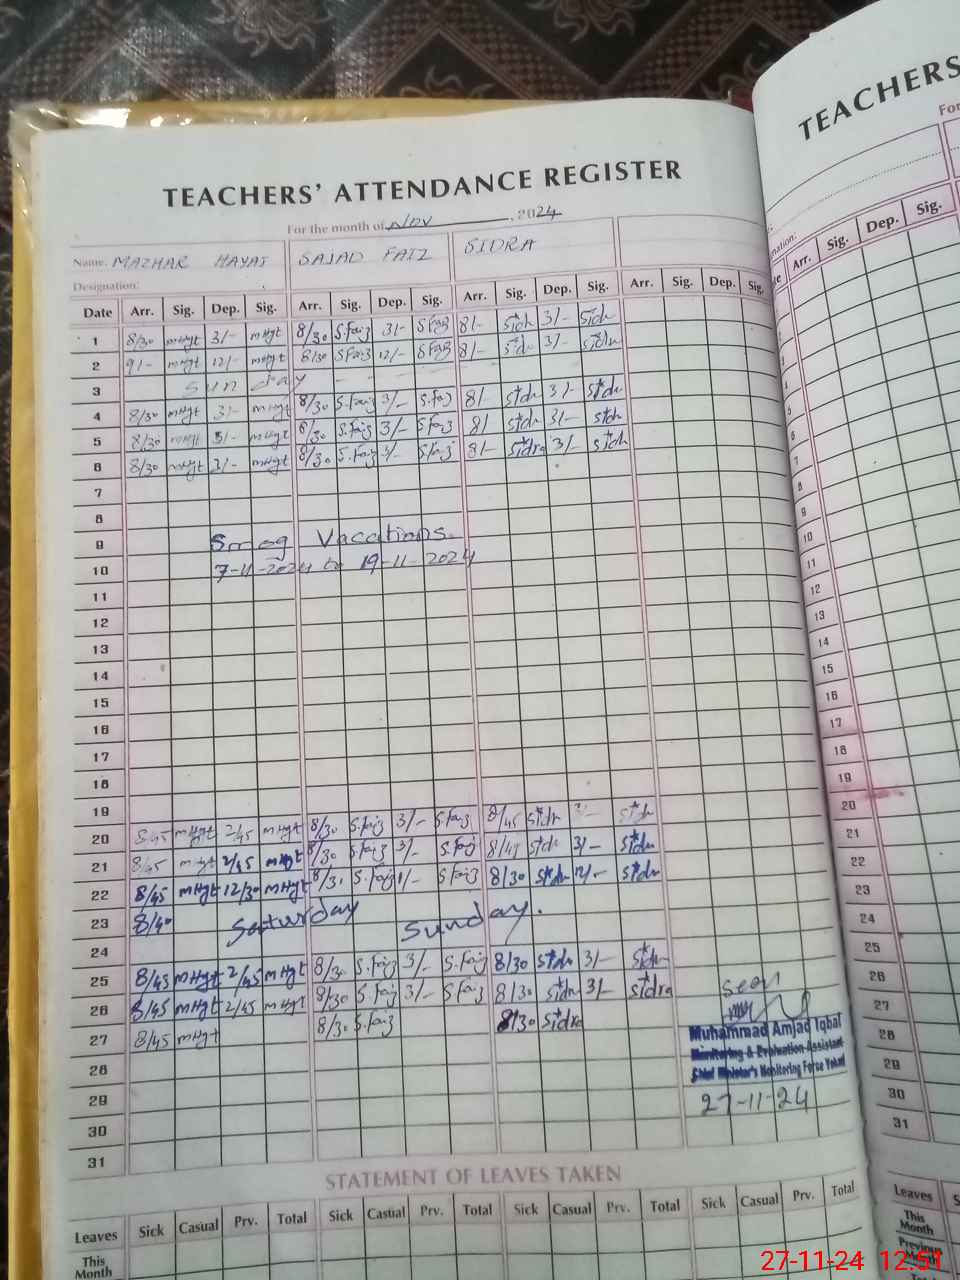 TEACHERS' ATTENDANCE REGISTER
For the month of Nov, 2024
Name: MAZHAR HAYAT SAJAD FAIZ SIDRA
Designation:
Date Arr. Sig. Dep. Sig. Arr. Sig. Dep. Sig. Arr. Sig. Dep. Sig. Arr. Sig. Dep. Sig.
1 8/30 mHyt 3/- mHyt 8/30 S.faiz 3/- S faiz 8/- Sidr 3/- Sidr
2 9/- mHyt 12/- mHyt 8/30 S Faiz 12/- S Faiz 8/- Sidr 3/- Sidr
3 Sunday
4 8/30 mHyt 3/- mHyt 8/30 S.faiz 3/- S.faiz 8/- Sidr 3/- Sidr
5 8/30 mHyt 3/- mHyt 8/30 S.faiz 3/- S.faiz 8/ Sidr 3/- Sidr
6 8/30 mHyt 3/- mHyt 8/30 S.faiz 3/- S.faiz 8/- Sidra 3/- Sidr
7
8
9 Smog Vacations.
10 7-11-2024 to 19-11-2024
11
12
13
14
15
16
17
18
19
20 8/45 mHyt 2/45 mHyt 8/30 S.faiz 3/- S.faiz 8/45 Sidr 3/- Sidr
21 8/45 mHyt 2/45 mHyt 8/30 S.faiz 3/- S.faiz 8/45 Sidr 3/- Sidr
22 8/45 mHyt 12/30 mHyt S.faiz S.faiz 8/30 Sidr 12/- Sidr
23 8/40 Saturday Sunday.
24
25 8/45 mHyt 2/45 mHyt 8/30 S.faiz 3/- S.faiz 8/30 Sidr 3/- Sidr
26 8/45 mHyt 2/45 mHyt 8/30 S.faiz 3/- S.faiz 8/30 Sidra 3/- Sidra
27 8/45 mHyt 8/30 S.faiz 8/30 Sidra
28
29
30
31
Seen
Muhammad Amjad Iqbal
Monitoring & Evaluation Assistant
Chief Minister's Monitoring Force
27-11-24
STATEMENT OF LEAVES TAKEN
Leaves Sick Casual Prv. Total Sick Casual Prv. Total Sick Casual Prv. Total Sick Casual Prv. Total
This Month
TEACHERS
For
Arr. Sig. Dep. Sig.
7
8
9
10
11
12
13
14
15
16
17
18
19
20
21
22
23
24
25
26
27
28
29
30
31
Leaves
This Month
Previous
27-11-24 12:51